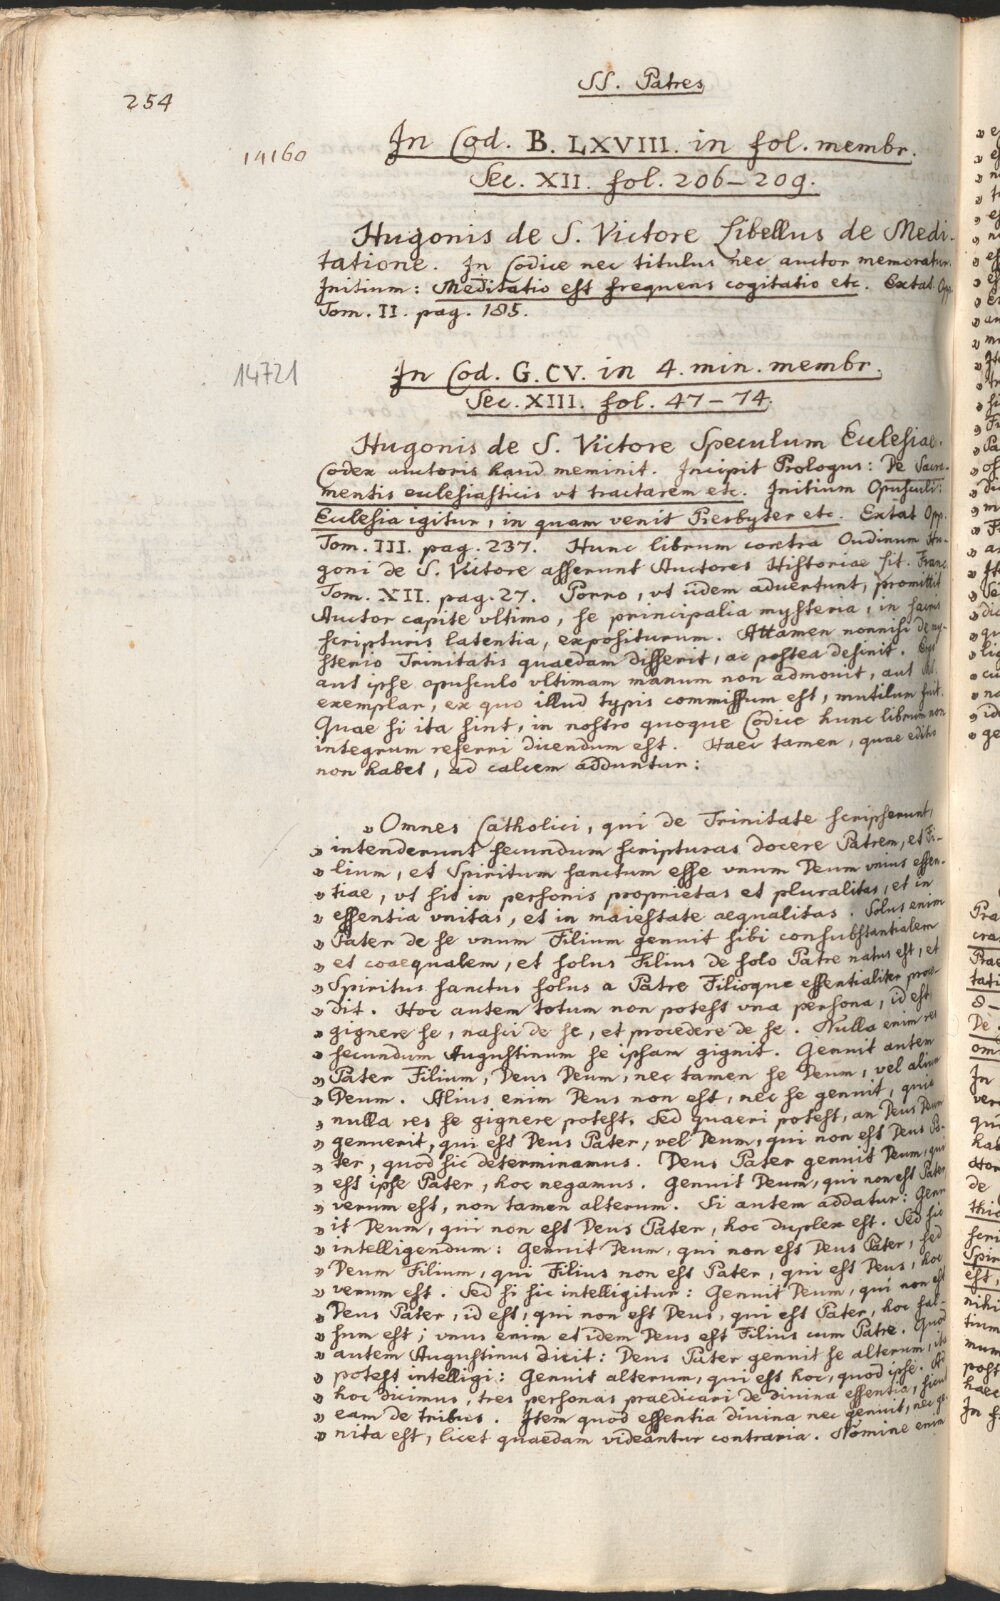 254
SS. Patres
14160
In Cod. B. LXVIII. in fol. membr.
Sec. XII. fol. 206–209.
Hugonis de S. Victore Libellus de Medi-
tatione. In Codice nec titulus nec auctor memoratur.
Initium: Meditatio est frequens cogitatio etc. Extat Opp.
Tom. II. pag. 185.
14721
In Cod. G. CV. in 4. min. membr.
Sec. XIII. fol. 47–74.
Hugonis de S. Victore Speculum Ecclesiae.
Codex auctoris haud meminit. Incipit Prologus: De Sacra-
mentis ecclesiasticis vt tractarem etc. Initium Opusculi:
Ecclesia igitur, in quam venit Presbyter etc. Extat Opp.
Tom. III. pag. 237. Hunc librum contra Oudinum Hu-
goni de S. Victore asserunt Auctores Historiae lit. Franc.
Tom. XII. pag. 27. Porro, vt iidem aduertunt, promittit
Auctor capite vltimo, se principalia mysteria, in sacris
scripturis latentia, expositurum. Attamen nonnisi de my-
sterio Trinitatis quaedam disserit, ac postea desinit.
aut ipse opusculo vltimam manum non admouit, aut
exemplar, ex quo illud typis commissum est, mutilum fuit.
Quae si ita sint, in nostro quoque Codice hunc librum non
integrum referri dicendum est. Haec tamen, quae editio
non habet, ad calcem adduntur:
» Omnes Catholici, qui de Trinitate scripserunt,
» intenderunt secundum scripturas docere Patrem, et Fi-
» lium, et Spiritum sanctum esse vnum Deum vnius essen-
» tiae, vt sit in personis proprietas et pluralitas, et in
» essentia vnitas, et in maiestate aequalitas. Solus enim
» Pater de se vnum Filium genuit sibi consubstantialem
» et coaequalem, et solus Filius de solo Patre natus est, et
» Spiritus sanctus solus a Patre Filioque essentialiter proce-
» dit. Hoc autem totum non potest vna persona, id est
» gignere se, nasci de se, et procedere de se. Nulla enim res
» secundum Augustinum se ipsam gignit. Genuit autem
» Pater Filium, Deus Deum, nec tamen se Deum, vel alium
» Deum. Alius enim Deus non est, nec se genuit, quia
» nulla res se gignere potest. Sed quaeri potest, an Deus Deum
» genuerit, qui est Deus Pater, vel Deum, qui non est Deus Pa-
» ter, quod sic determinamus. Deus Pater genuit Deum, qui
» est ipse Pater, hoc negamus. Genuit Deum, qui non est Pater,
» verum est, non tamen alterum. Si autem addatur: Genu-
» it Deum, qui non est Deus Pater, hoc duplex est. Sed sic
» intelligendum: Genuit Deum, qui non est Deus Pater, sed
» Deum Filium, qui Filius non est Pater, qui est Deus, hoc
» verum est. Sed si sic intelligitur: Genuit Deum, qui non est
» Deus Pater, id est, qui non est Deus, qui est Pater, hoc fal-
» sum est; vnus enim et idem Deus est Filius cum Patre. Quod
» autem Augustinus dicit: Deus Pater genuit se alterum, ita
» potest intelligi: Genuit alterum, qui est hoc, quod ipse.
» hoc dicimus, tres personas praedicari de diuina essentia, sicut
» eam de tribus. Item quod essentia diuina nec genuit, nec ge-
» nita est, licet quaedam videantur contraria. Nomine enim